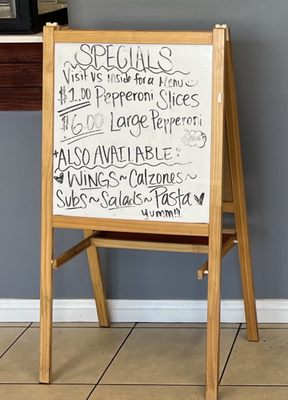 ~SPECIALS~
Visit Us inside for a Menu
$1.00 Pepperoni Slices
$6.00 Large Pepperoni
*ALSO AVAILABLE:
WINGS~Calzones~
Subs~Salads~Pasta
yumm!!